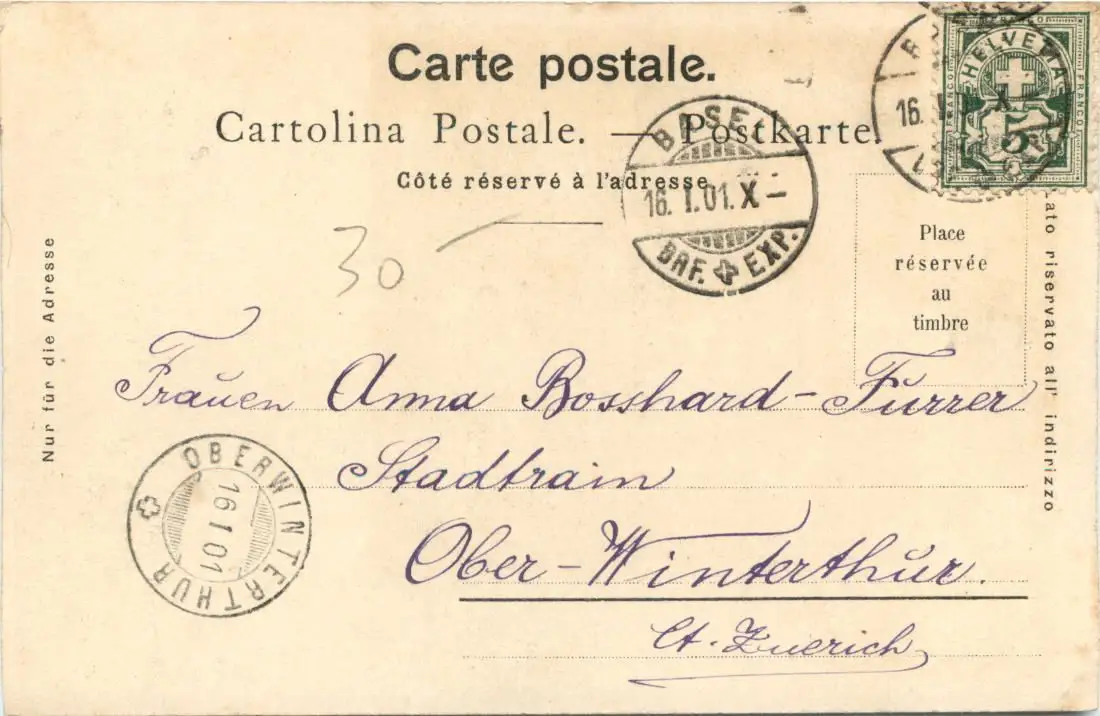 Carte postale.
Cartolina Postale. — Postkarte.
Côté réservé à l'adresse
BASEL
16. I. 01. X –
BRF. EXP.
HELVETIA
FRANCO
FRANCO
FRANCO
5
16.
X
Place
réservée
au
timbre
Nur für die Adresse
lato riservato all' indirizzo
30
Frauen Anna Bosshard-Furrer
Stadtrain
Ober-Winterthur.
Ct. Zuerich
OBERWINTERTHUR
16 I 01